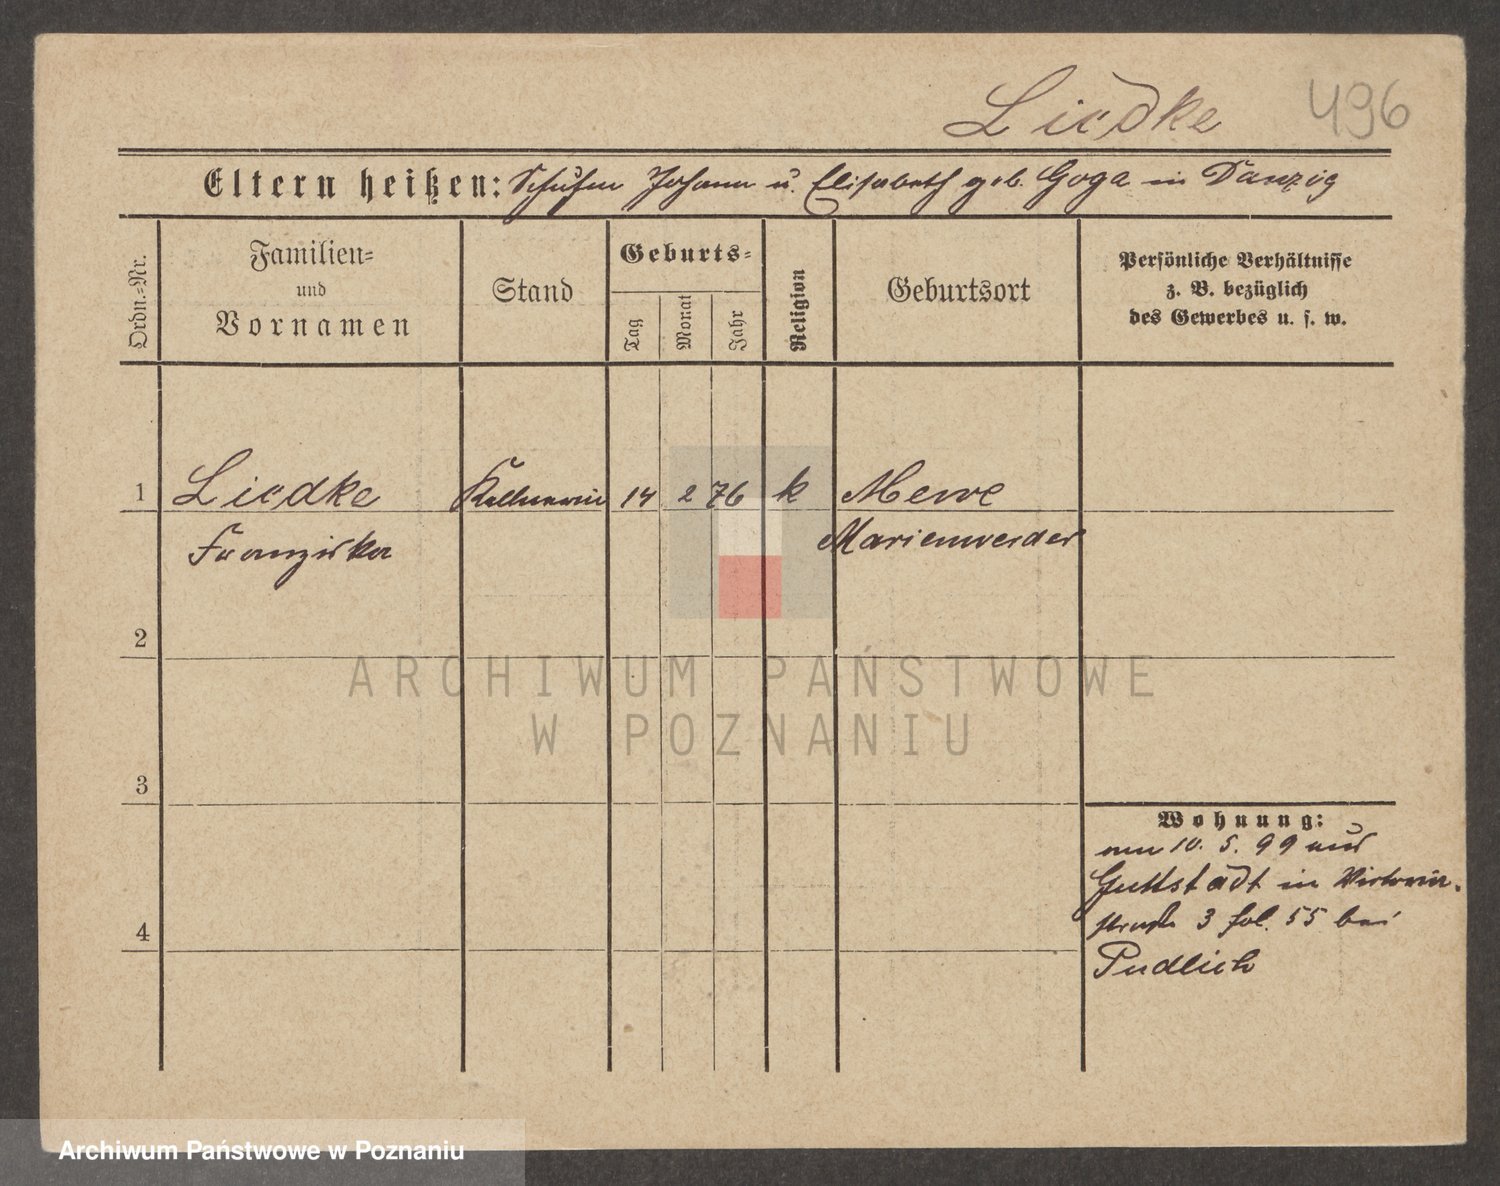 Liedke 496
Eltern heißen: Johann u. Elisabeth geb. Goga in Danzig
Ordn.-Nr.
Familien-
und
Vornamen
Stand
Geburts-
Tag
Monat
Jahr
Religion
Geburtsort
Persönliche Verhältnisse
z. B. bezüglich
des Gewerbes u. s. w.
1 Liedke Kellnerin 14 2 76 k Mewe
Franziska Marienwerder
2
ARCHIWUM PAŃSTWOWE
W POZNANIU
3
Wohnung:
am 10. 5. 99 aus
Guttstadt in Victoria-
straße 3 fol. 55 bei
4
Pudlich
Archiwum Państwowe w Poznaniu